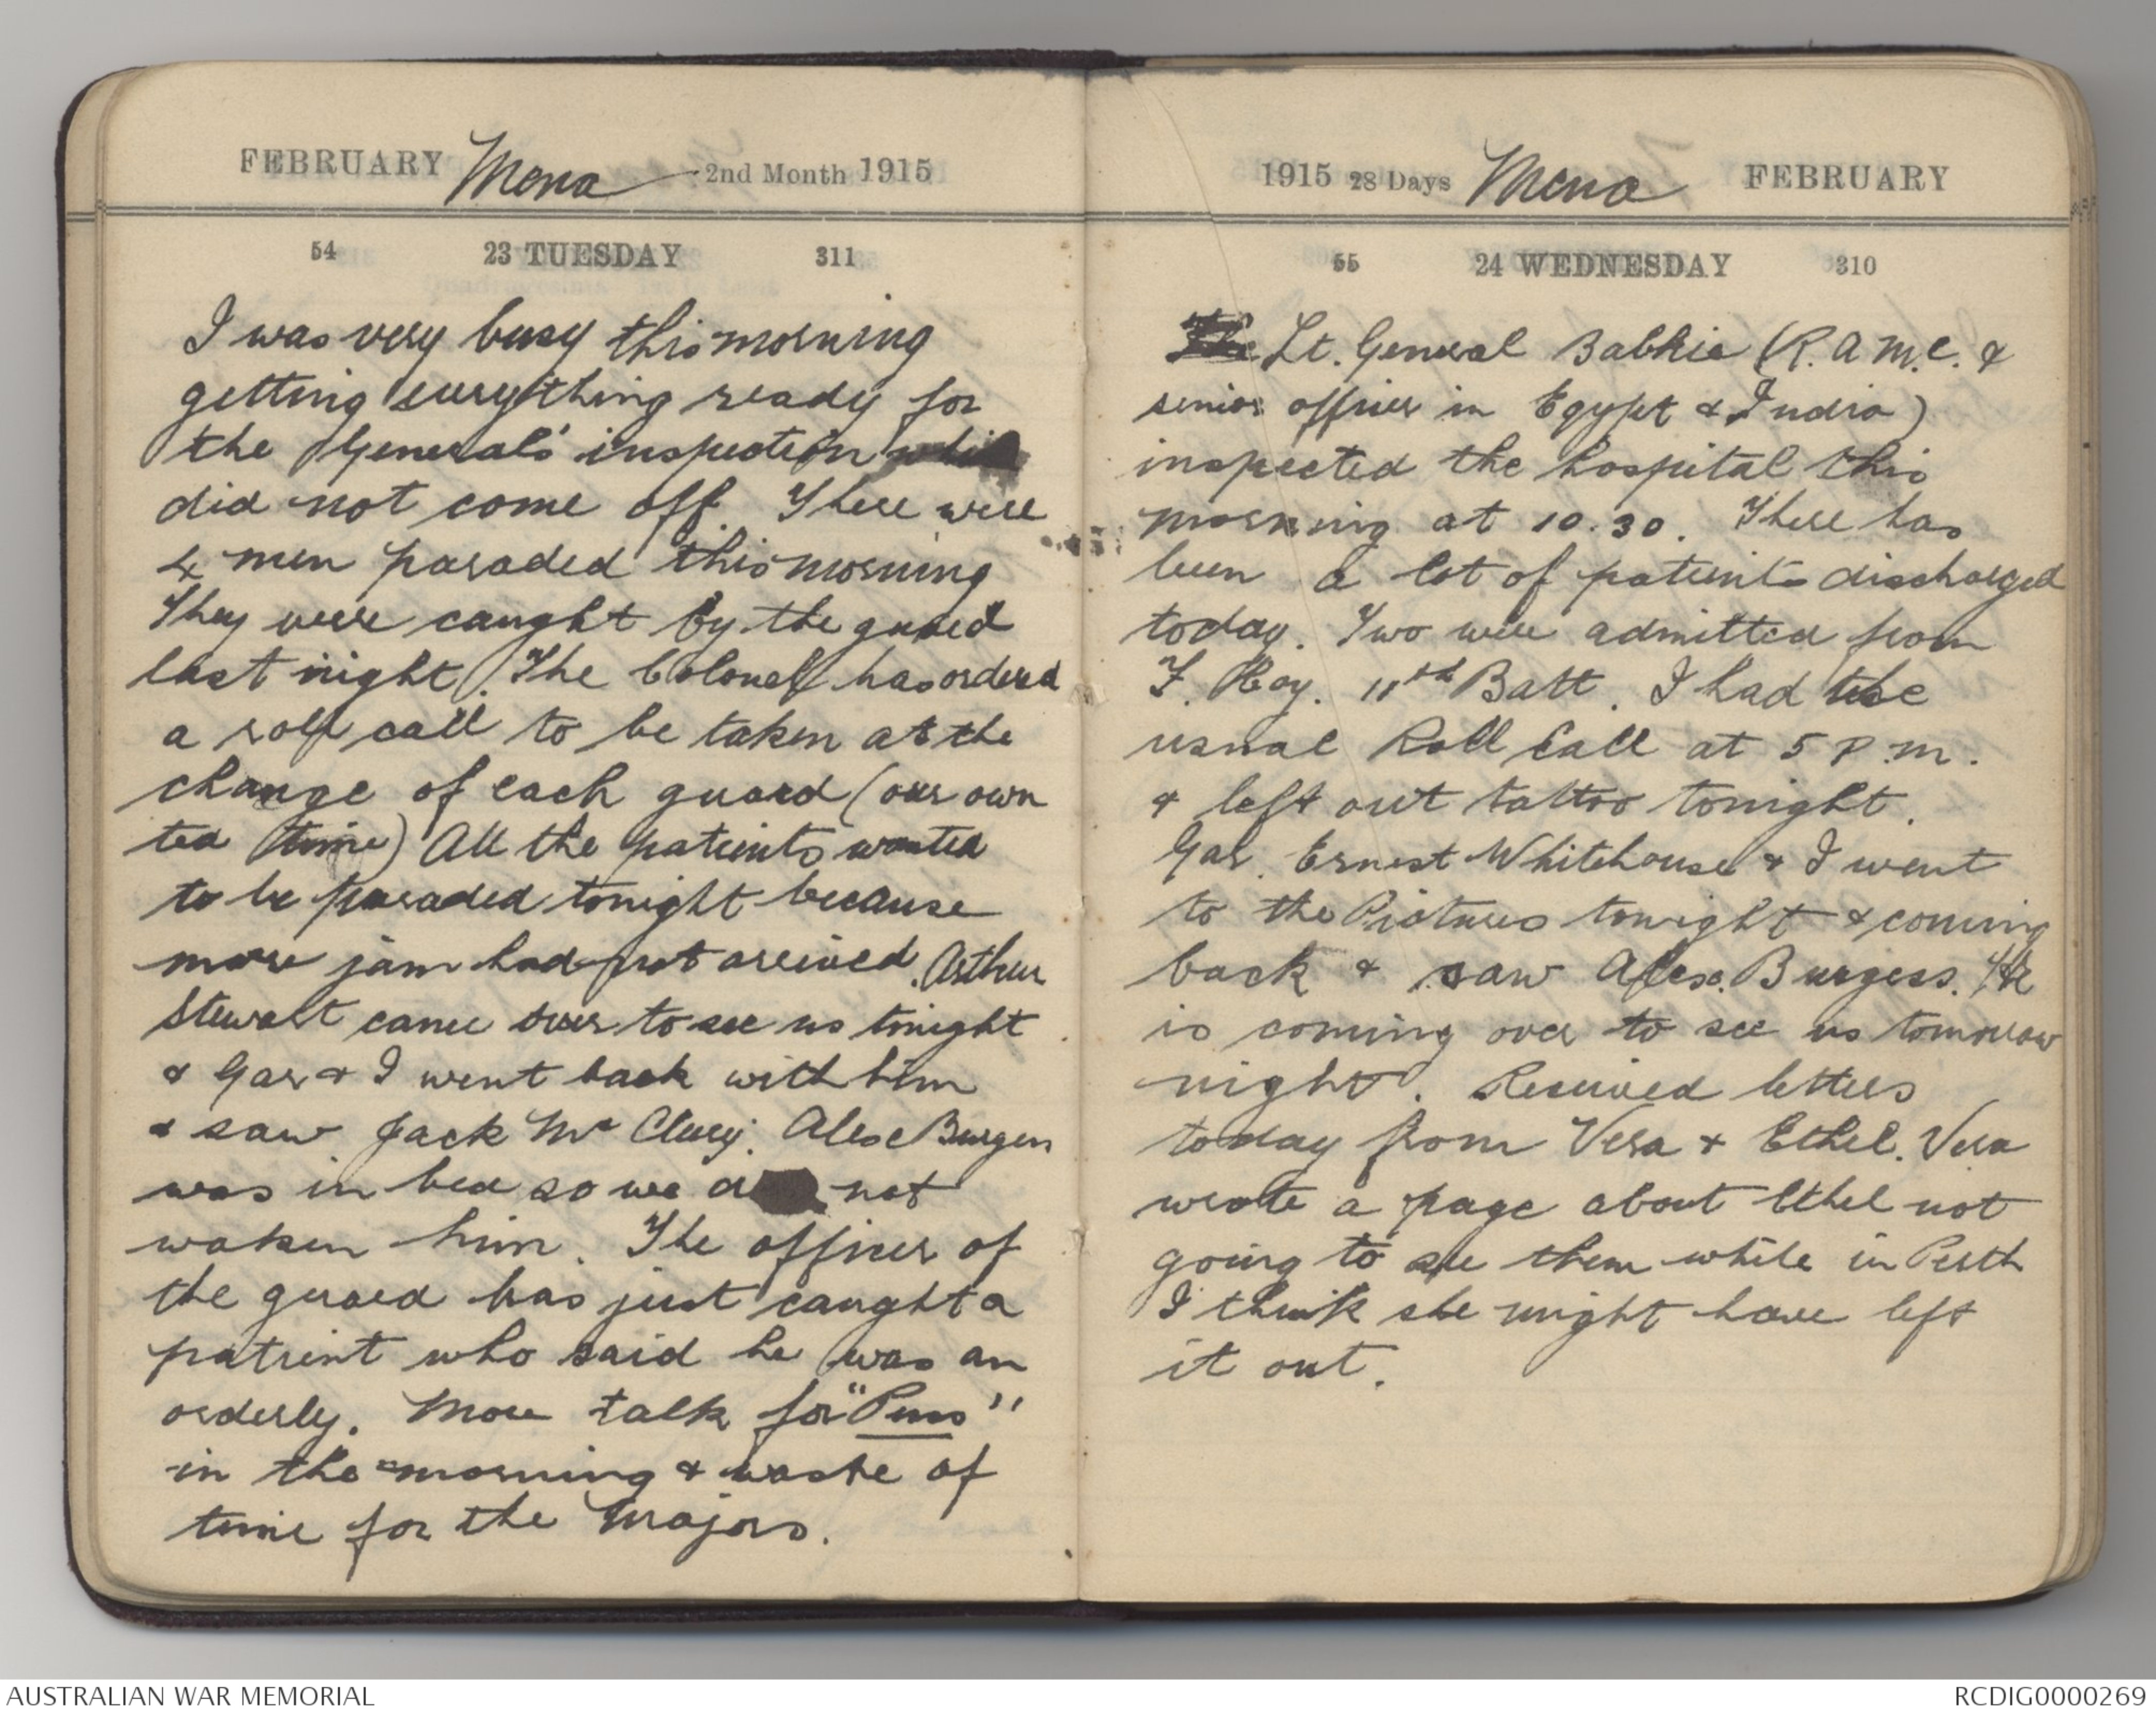 FEBRUARY Mena 2nd Month 1915
54 23 TUESDAY 311
I was very busy this morning
getting everything ready for
the General's inspection
did not come off. There were
4 men paraded this morning
They were caught by the guard
last night. The Colonel has ordered
a roll call to be taken at the
change of each guard (our own
tea time) All the patients wanted
to be paraded tonight because
more jam had not arrived. Arthur
Stewart came over to see us tonight
& Gar & I went back with him
& saw Jack Mc Clery. Alex Burgess
was in bed so we not
waken him. The officer of
the guard has just caught a
patient who said he was an
orderly. More talk for "Puss"
in the morning & waste of
time for the Majors.
1915 28 Days Mena FEBRUARY
55 24 WEDNESDAY 310
The Lt. General Babkie (R.A.M.C. &
senior officer in Egypt & India)
inspected the hospital this
morning at 10.30. There has
been a lot of patients discharged
today. Two were admitted from
F. Coy. 11th Batt. I had the
usual Roll Call at 5 P.M.
& left out tattoo tonight.
Gar. Ernest Whitehouse & I went
to the Pictures tonight & coming
back & saw Alex. Burgess. He
is coming over to see us tomorrow
night. Received letters
today from Vera & Ethel. Vera
wrote a page about Ethel not
going to see them while in Perth
I think she might have left
it out.
AUSTRALIAN WAR MEMORIAL
RCDIG0000269